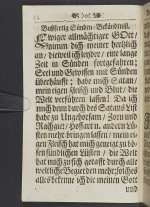 Bußfertig Sünden-Bekändniß.
Ewiger allmächtiger GOtt/
nimm dich meiner hertzlich
an/ die weil ich leyder/ eine lange
Zeit in Sünden fortgefahren/
Seel und Gewissen mit Sünden
überhäufft/ habe mich Satan/
mein eigen Fleisch und Blut/ die
Welt verführen lassen! Da ich
mich dann durch des Satans List
habe zu Ungehorsam/ Zorn und
Rachgier/ Hoffart u. andern Lü-
sten mehr bringen lassen/ mein ei-
gen Fleisch hat mich geneigt zu bö-
sen sündlichen Lüsten/ die Welt
hat mich zu sich gerafft durch alle
weltliche Begierden mehr/ solches
alles bekenne ich die meinen Gott
und